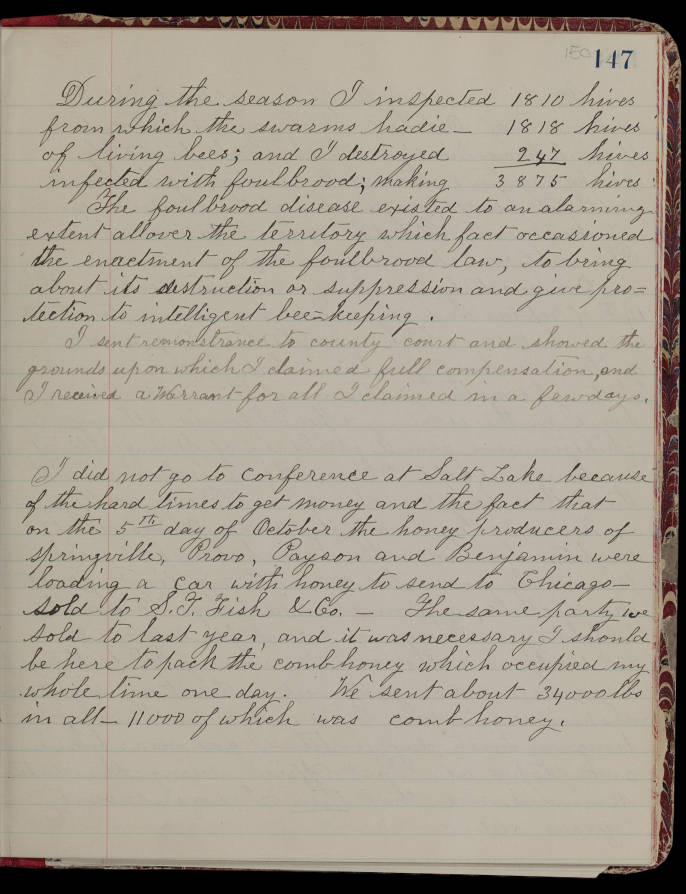 150 147
During the season I inspected 1810 hives
from which the swarms hadie- 1818 hives
of living bees; and I destroyed 247 hives
infected with foulbrood; making 3875 hives
The foulbrood disease existed to an alarming
extent all over the territory which fact occassioned
the enactment of the foulbrood law, to bring
about its destruction or suppression and give pro=
tection to intelligent bee-keeping.
I sent remonstrance to county court and showed the
grounds upon which I claimed full compensation, and
I received a Warrant for all I claimed in a few days.
I did not go to conference at Salt Lake because
of the hard times to get money and the fact that
on the 5th day of October the honey producers of
Springville, Provo, Payson and Benjamin were
loading a car with honey to send to Chicago-
sold to S.T. Fish & Co. - The same party we
sold to last year, and it was necessary I should
be here to pack the comb honey which occupied my
whole time one day. We sent about 34000 lbs
in all- 11000 of which was comb honey.